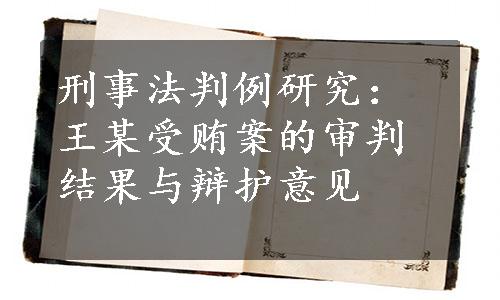 刑事法判例研究：
王某受贿案的审判
结果与辩护意见